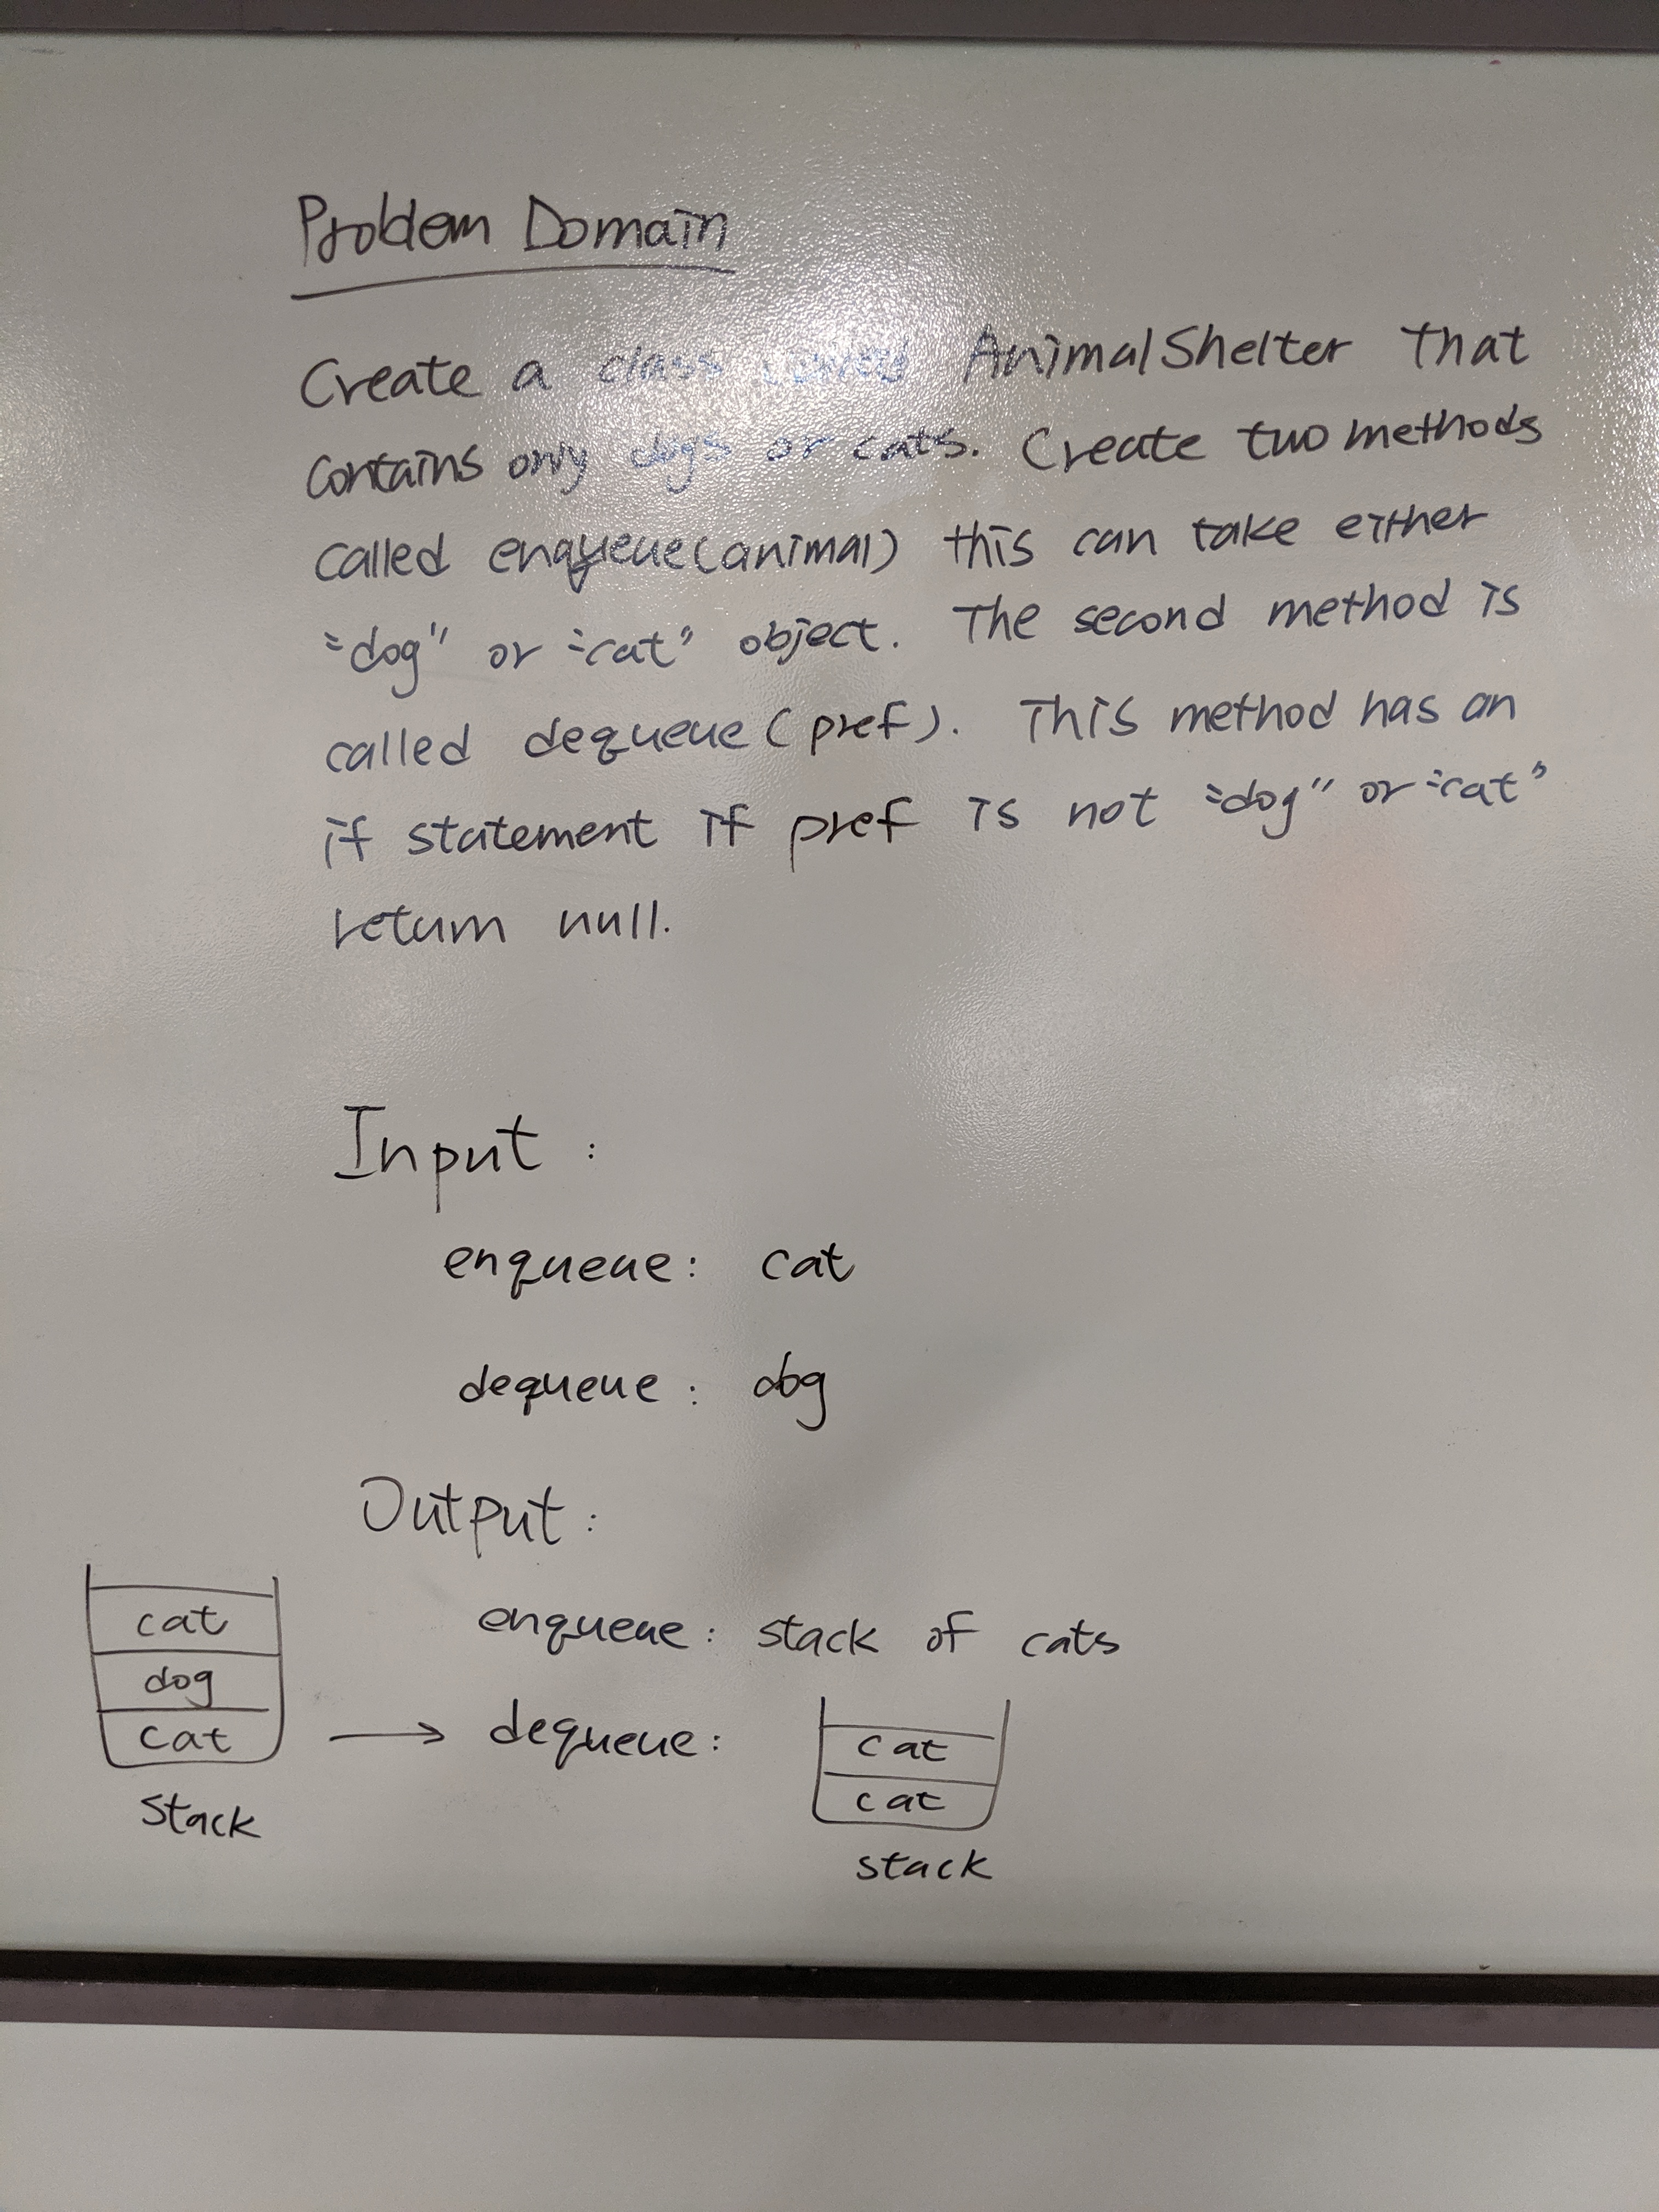 Problem Domain
Create a class called AnimalShelter that
contains only dogs or cats. Create two methods
called enqueue(animal) this can take either
"dog" or "cat" object. The second method is
called dequeue(pref). This method has an
if statement if pref is not "dog" or "cat"
return null.
Input :
enqueue: cat
dequeue: dog
Output:
enqueue: stack of cats
cat
dog
cat
stack
→ dequeue:
cat
cat
stack